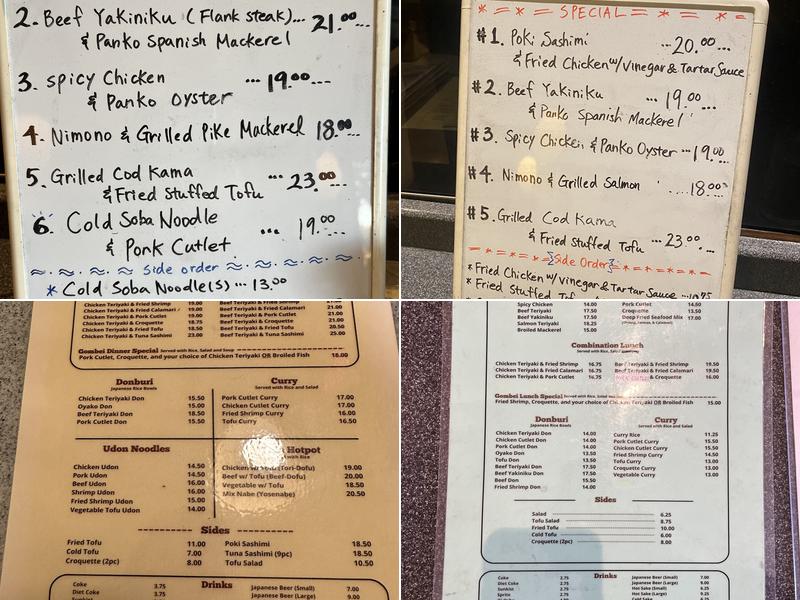 2. Beef Yakiniku (Flank steak)... 21.00...
& Panko Spanish Mackerel
3. Spicy Chicken ... 19.00...
& Panko Oyster
4. Nimono & Grilled Pike Mackerel 18.00...
5. Grilled Cod Kama ... 23.00...
& Fried Stuffed Tofu
6. Cold Soba Noodle ... 19.00
& Pork Cutlet
Side order
* Cold Soba Noodle(s) ... 13.00
* = * = SPECIAL = * = *
#1. Poki Sashimi ... 20.00...
& Fried Chicken w/ Vinegar & Tartar Sauce
#2. Beef Yakiniku ... 19.00...
& Panko Spanish Mackerel
#3. Spicy Chicken & Panko Oyster ... 19.00
#4. Nimono & Grilled Salmon ... 18.00
#5. Grilled Cod Kama
& Fried Stuffed Tofu ... 23.00...
Side Order
* Fried Chicken w/ Vinegar & Tartar Sauce
* Fried Stuffed
Chicken Teriyaki & Fried Shrimp 19.00
Chicken Teriyaki & Fried Calamari 19.00
Chicken Teriyaki & Pork Cutlet 19.00
Chicken Teriyaki & Croquette 19.00
Chicken Teriyaki & Fried Tofu 18.50
Chicken Teriyaki & Tuna Sashimi 23.00
Beef Teriyaki & Fried Calamari 21.00
Beef Teriyaki & Pork Cutlet 21.00
Beef Teriyaki & Croquette 21.00
Beef Teriyaki & Fried Tofu 20.50
Beef Teriyaki & Tuna Sashimi 25.00
Gombei Dinner Special Served with Rice, Salad and Soup
Pork Cutlet, Croquette, and your choice of Chicken Teriyaki OR Broiled Fish 18.00
Donburi
Japanese Rice Bowls
Chicken Teriyaki Don 15.50
Oyako Don 15.00
Beef Teriyaki Don 18.50
Pork Cutlet Don 15.50
Curry
Served with Rice and Salad
Pork Cutlet Curry 17.00
Chicken Cutlet Curry 17.00
Fried Shrimp Curry 16.00
Tofu Curry 16.50
Udon Noodles
Chicken Udon 14.50
Pork Udon 14.50
Beef Udon 16.00
Shrimp Udon 16.00
Fried Shrimp Udon 15.00
Vegetable Tofu Udon 14.00
Hotpot
with Rice
Chicken w/ Tofu (Tori-Dofu) 19.00
Beef w/ Tofu (Beef-Dofu) 20.00
Vegetable w/ Tofu 18.50
Mix Nabe (Yosenabe) 20.50
Sides
Fried Tofu 11.00
Cold Tofu 7.00
Croquette (2pc) 8.00
Poki Sashimi 18.50
Tuna Sashimi (9pc) 18.50
Tofu Salad 10.50
Drinks
Coke 3.75
Diet Coke 2.75
Japanese Beer (Small) 7.00
Japanese Beer (Large) 9.00
Spicy Chicken 14.00
Beef Teriyaki 17.50
Beef Yakiniku 17.50
Salmon Teriyaki 18.25
Broiled Mackerel 15.00
Pork Cutlet 14.50
Croquette 13.50
Deep Fried Seafood Mix 17.00
Combination Lunch
Served with Rice
Chicken Teriyaki & Fried Shrimp 16.75
Chicken Teriyaki & Fried Calamari 16.75
Chicken Teriyaki & Pork Cutlet 16.75
Beef Teriyaki & Fried Shrimp 19.50
Beef Teriyaki & Fried Calamari 19.50
& Croquette 16.00
Gombei Lunch Special
Fried Shrimp, Croquette, and your choice of Chicken Teriyaki OR Broiled Fish 15.00
Donburi
Japanese Rice Bowls
Chicken Teriyaki Don 14.00
Chicken Cutlet Don 14.00
Pork Cutlet Don 14.00
Oyako Don 13.50
Tofu Don 13.50
Beef Teriyaki Don 17.50
Beef Yakiniku Don 17.50
Beef Don 15.50
Fried Shrimp Don 14.00
Curry
Served with Rice and Salad
Curry Rice 11.25
Pork Cutlet Curry 15.50
Chicken Cutlet Curry 15.50
Fried Shrimp Curry 14.50
Tofu Curry 13.00
Croquette Curry 13.00
Vegetable Curry 13.00
Sides
Salad 6.25
Tofu Salad 8.75
Fried Tofu 10.00
Cold Tofu 6.00
Croquette (2pc) 8.00
Drinks
Coke 2.75
Diet Coke 2.75
Sunkist 2.75
Sprite 2.75
Japanese Beer (Small) 7.00
Japanese Beer (Large) 9.00
Hot Sake (Small) 6.25
Hot Sake (Large) 9.25